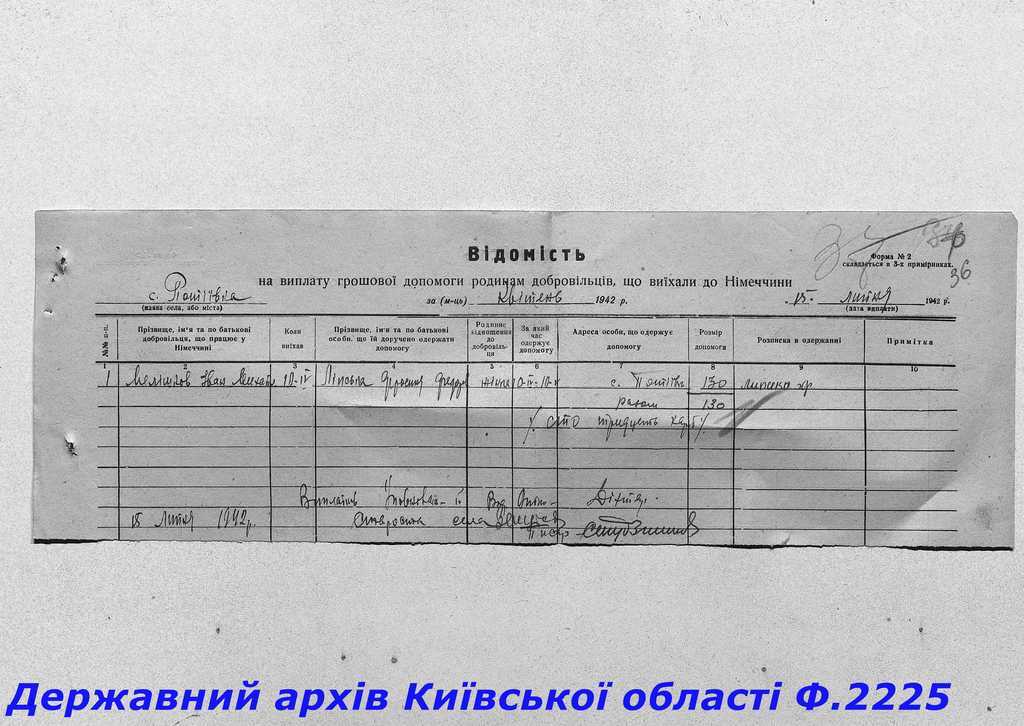 36
Відомість
Форма № 2
складається в 3-х примірниках.
на виплату грошової допомоги родинам добровільців, що виїхали до Німеччини
36
с. Потіївка за (м-ць) Квітень 1942 р. 15. липня 1942 р.
(назва села, або міста) (дата виплати)
№№ п-п. Прізвище, ім'я та по батькові добровільця, що працює у Німеччині Коли виїхав Прізвище, ім'я та по батькові особи, що їй доручено одержати допомогу Родинне відношення до добровільця За який час одержує допомогу Адреса особи, що одержує допомогу Розмір допомоги Розписка в одержанні Примітка
1 2 3 4 5 6 7 8 9 10
1 Іван 10-IV жінка с. 130
разом 130
сто тридцять карб.
Виплатив
15 липня 1942 р. Староста села
Державний архів Київської області Ф.2225